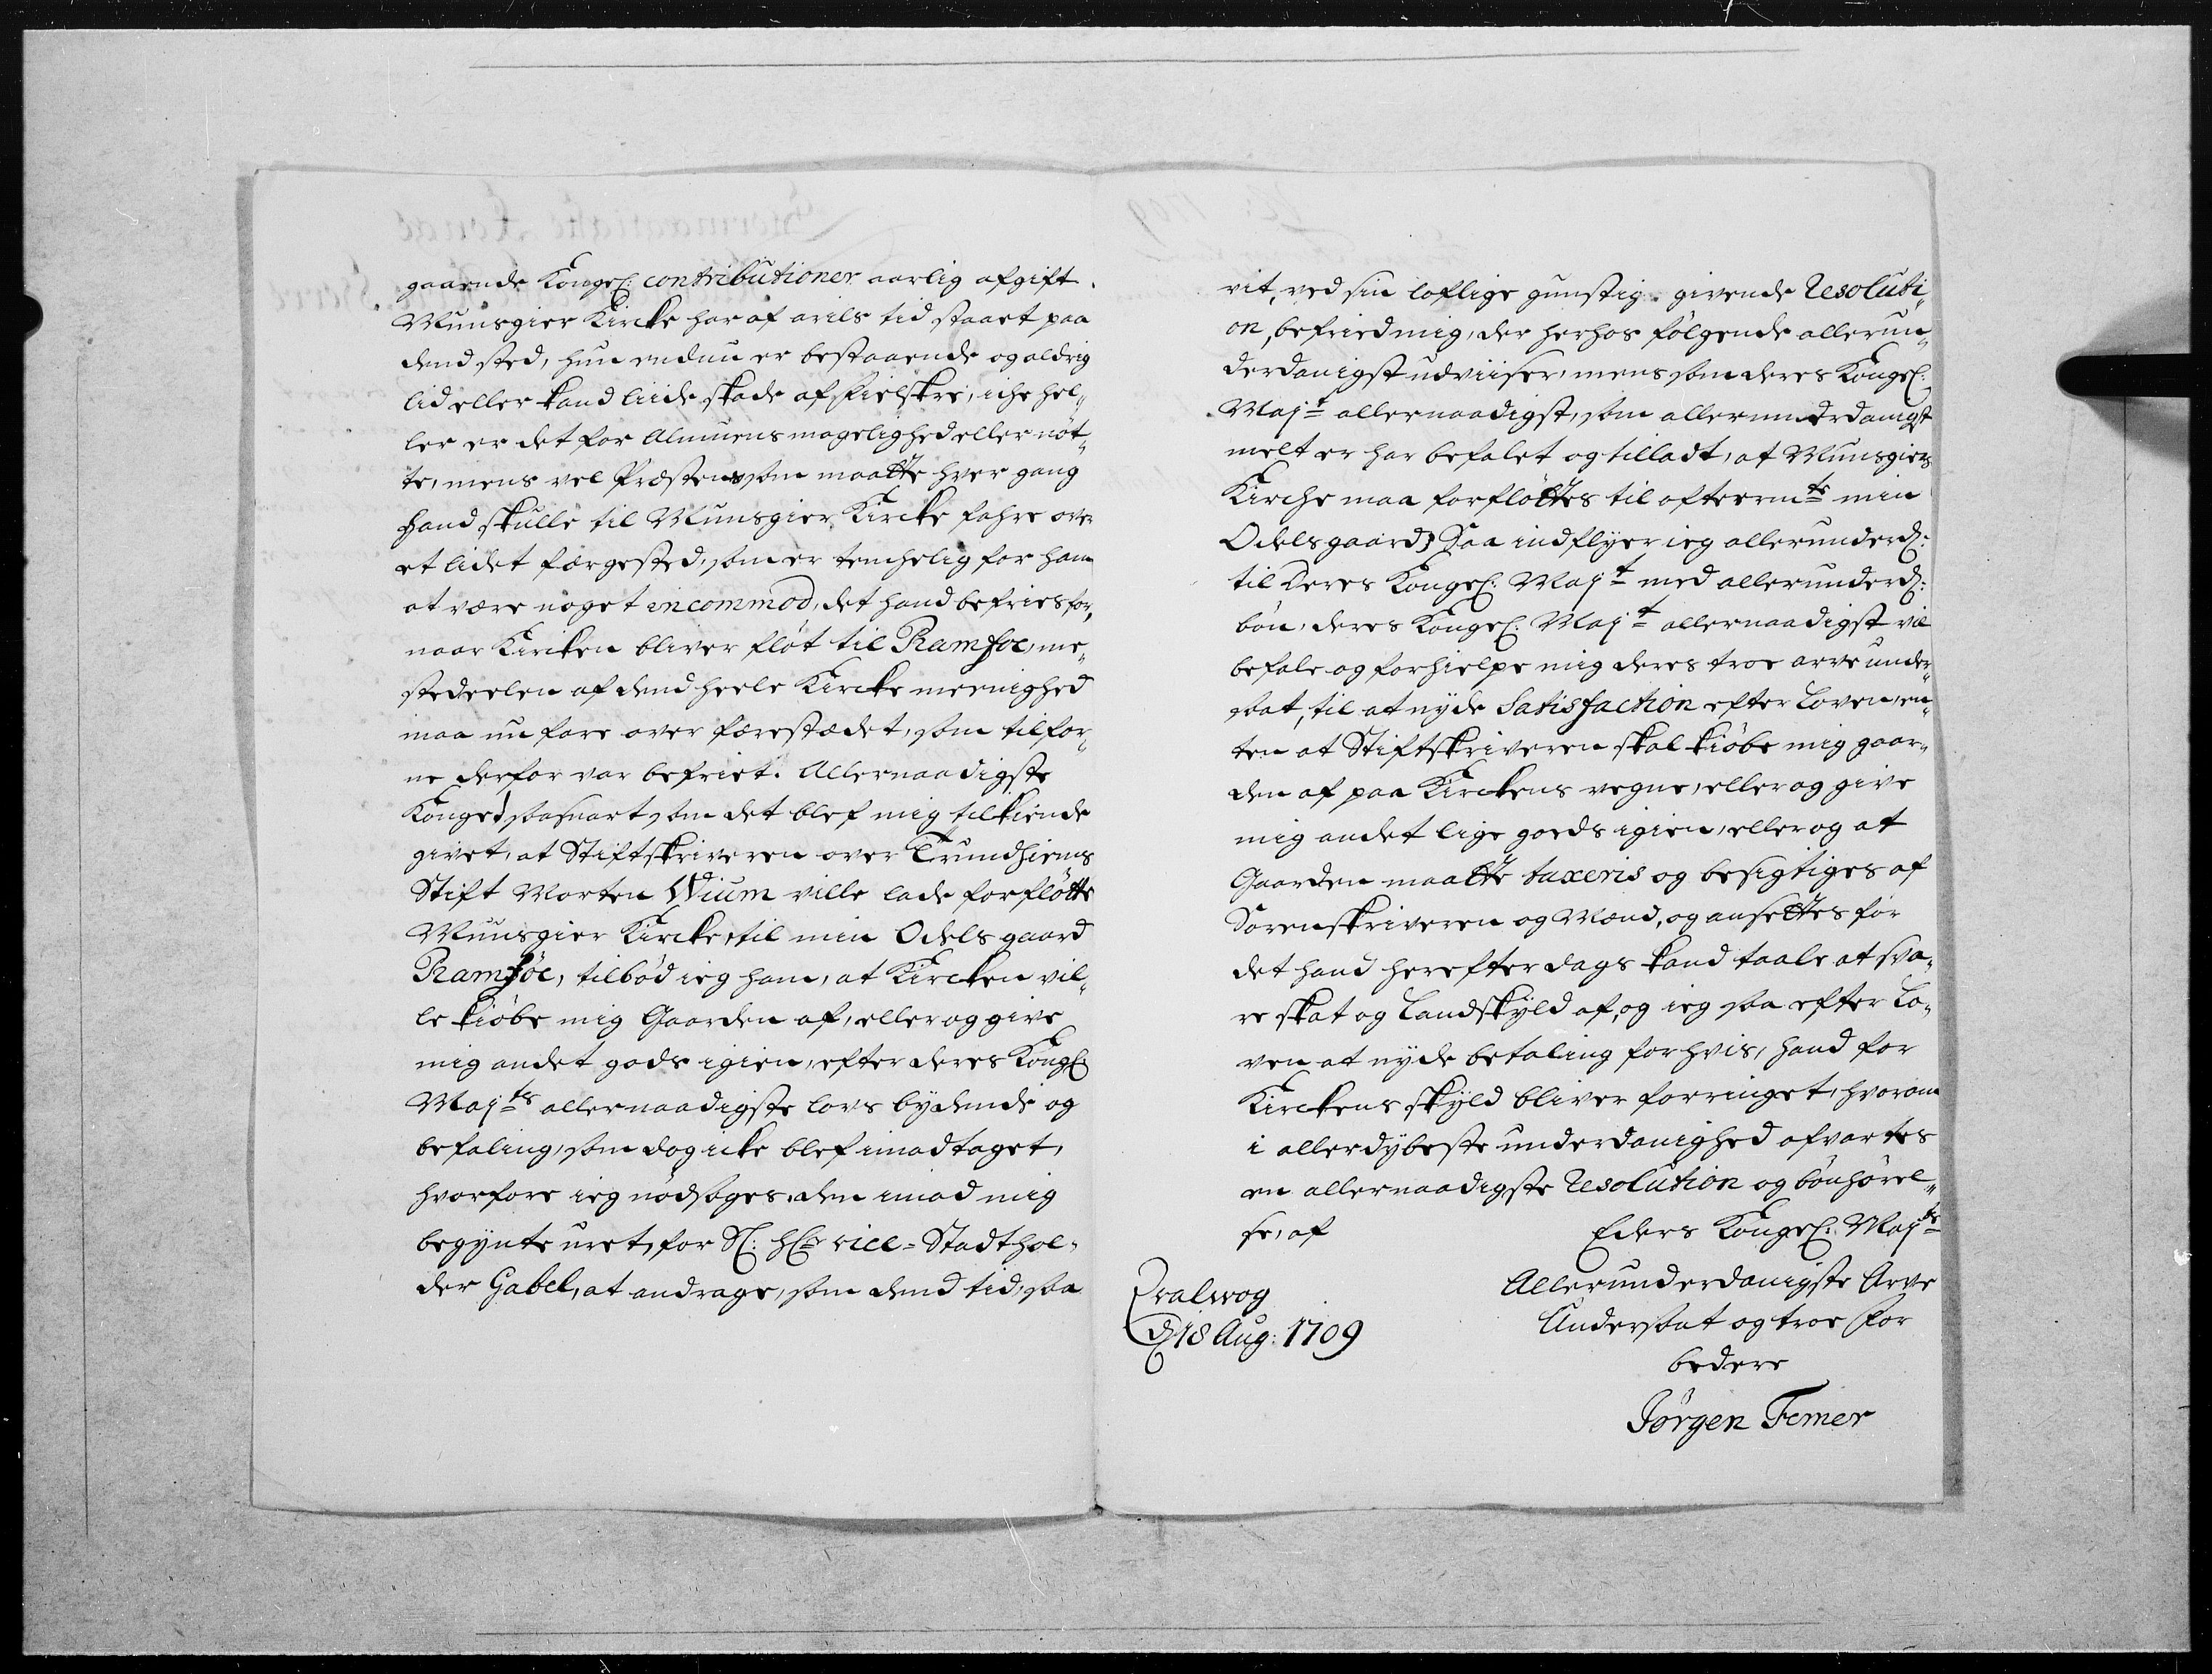 gaaende Kongel: contributioner aarlig afgift.
Muusgier Kircke har af arils tid staaet paa
dend sted, hun endnu er bestaaende og aldrig
lid eller kand liide skade af fielskre, iche hel„
ler er det for Almuens magelighed eller nöt„
te, mens vel Præstens som maatte hver gang
hand skulle til Muusgier Kircke fahre over
et lidet færgested, som er temhelig for ham
at være noget incommod, det hand befries for,
naar Kircken bliver flöt til Ramsoe, me„
stedeelen af dend heele Kircke meenighed
maa nu fare over færestædet, som tilfor„
ne derfor var befriet. Allernaadigste
Konge! saasnart som det blef mig tilkiende
givet, at Stiftskriveren over Trundhiems
Stift Morten Wium ville lade forflötte
Muusgier Kircke, til min Odels gaard
Ramsöe, tilböd ieg ham, at Kircken vil„
le kiöbe mig Gaarden af, eller og give
mig andet gods igien, efter deres Kongl:
Majts allernaadigste lovs bydende og
befaling, som dog icke blef imodtaget,
hvorfore ieg nödsages, den imod mig
begynte uret, for Sl: hEr vice-Stadthol„
der Gabel, at andrage, som dend tid, saa
vit, ved sin loflige gunstig givende Resoluti„
on, befried mig, der herhos fölgende allerun„
derdanigst udviiser, mens som deres Kongel:
Majt allernaadigst, som allerunderdanigst
melt er har befalet og tilladt, at Muusgiers
Kirche maa forflöttes til oftermte min
Odelsgaard; Saa indflyer ieg allerunderd:
til Deres Kongel: Majt med allerunderd:
bön, deres Kongel: Majt allernaadigst vil
befale og forhielpe mig deres troe arve under„
saat, til at nyde Satisfaction efter Loven, en„
ten at Stiftskriveren skal kiöbe mig gaar„
den af paa Kirckens vegne, eller og give
mig andet lige goeds igien, eller og at
Gaarden maatte taxeris og besigtiges af
Sorenskriveren og Mænd, og ansettes for
det hand herefter dags kand taale at sva„
re skat og Landskyld af, og ieg saa efter Lo„
ven at nyde betaling for hvis, hand for
Kirckens skyld bliver forringet, hvorom
i allerdybeste underdanighed afvartes
en allernaadigste Resolution og bönhörel„
se, af
Eders Kongel: Majts
Allerunderdanigste Arve
Undersaat og troe for
bedere
Jörgen Femer
Qvalwog
d 18 Aug: 1709